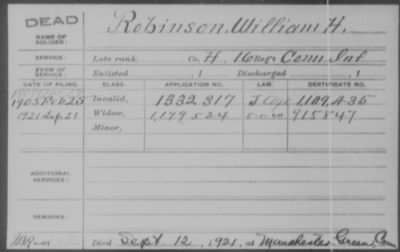 DEAD
NAME OF SOLDIER: Robinson, William H.
SERVICE: Late rank, Co. H, 16 Reg't Conn. Inf
TERM OF SERVICE: Enlisted , 1 Discharged , 1
DATE OF FILING. CLASS. APPLICATION NO. LAW. CERTIFICATE NO.
1905 Invalid, 1332 317
1921 Sep. 21 Widow, 1,179,524 915847
Minor,
ADDITIONAL SERVICES:
REMARKS:
Died Sept. 12, 1921, at Manchester Green, Conn